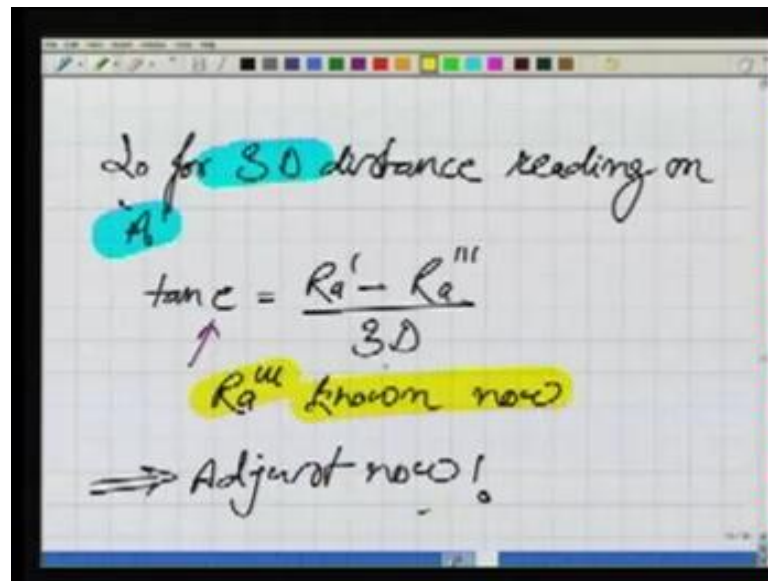 So for 3D distance reading on
A
tan e = Ra' - Ra''' / 3D
Ra''' known now
⇒ Adjust now!